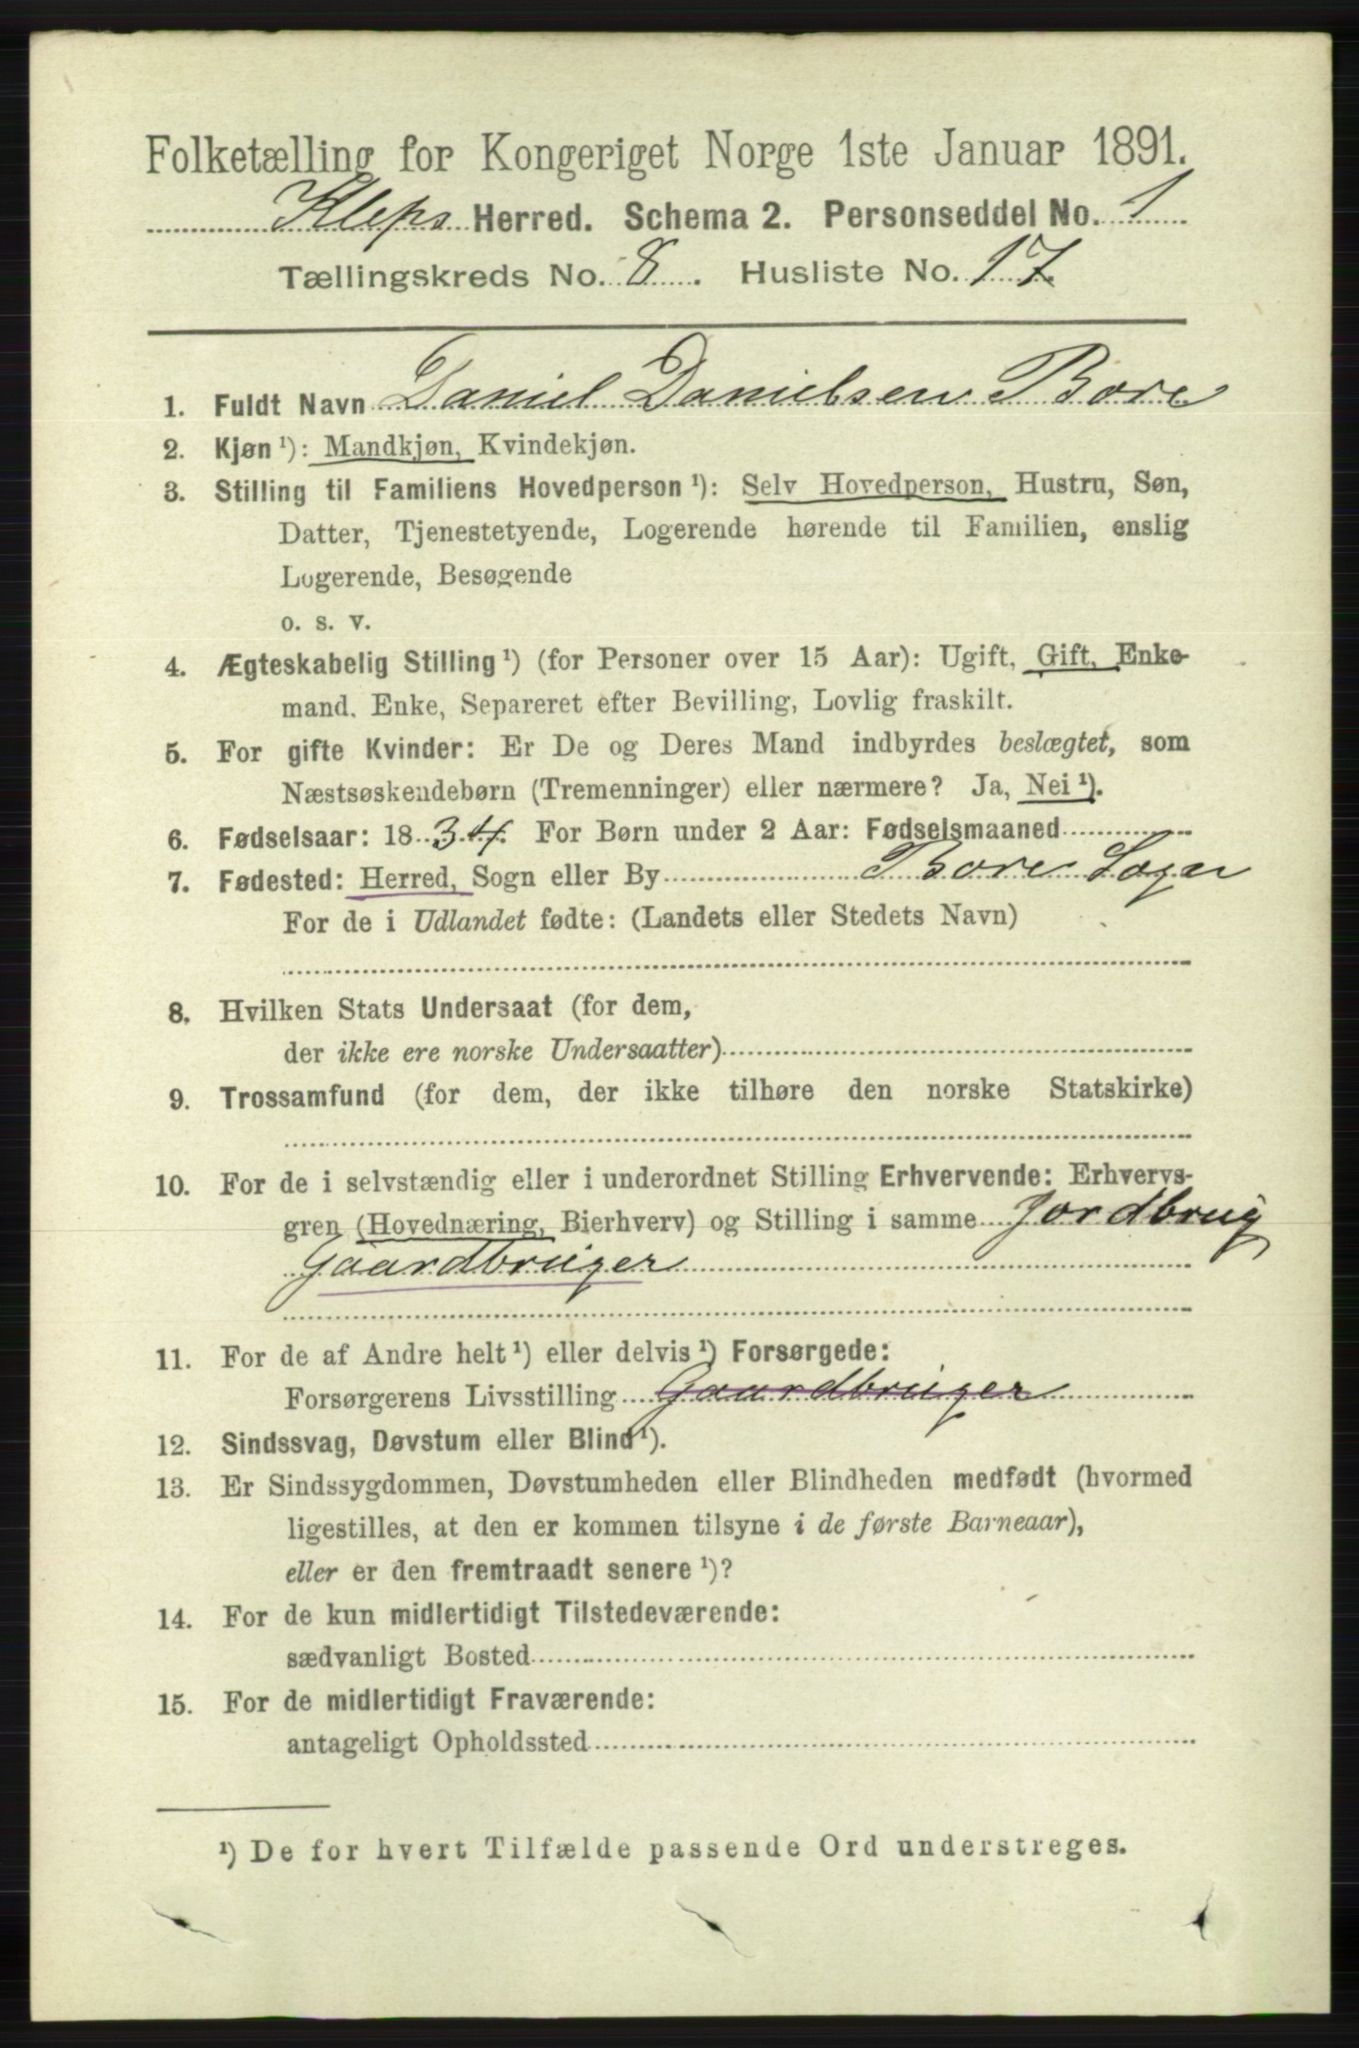 Folketælling for Kongeriget Norge 1ste Januar 1891.
Kleps Herred. Schema 2. Personseddel No. 1
Tællingskreds No. 8. Husliste No. 17
1. Fuldt Navn Daniel Danielsen Bore
2. Kjøn ¹): Mandkjøn, Kvindekjøn.
3. Stilling til Familiens Hovedperson ¹): Selv Hovedperson, Hustru, Søn,
Datter, Tjenestetyende, Logerende hørende til Familien, enslig
Logerende, Besøgende
o. s. v.
4. Ægteskabelig Stilling ¹) (for Personer over 15 Aar): Ugift, Gift, Enke-
mand. Enke, Separeret efter Bevilling, Lovlig fraskilt.
5. For gifte Kvinder: Er De og Deres Mand indbyrdes beslægtet, som
Næstsøskendebørn (Tremenninger) eller nærmere? Ja, Nei ¹).
6. Fødselsaar: 1834. For Børn under 2 Aar: Fødselsmaaned
7. Fødested: Herred, Sogn eller By Bore Sogn
For de i Udlandet fødte: (Landets eller Stedets Navn)
8. Hvilken Stats Undersaat (for dem,
der ikke ere norske Undersaatter)
9. Trossamfund (for dem, der ikke tilhøre den norske Statskirke)
10. For de i selvstændig eller i underordnet Stilling Erhvervende: Erhvervs-
gren (Hovednæring, Bierhverv) og Stilling i samme Jordbrug
Gaardbruger
11. For de af Andre helt ¹) eller delvis ¹) Forsørgede:
Forsørgerens Livsstilling Gaardbruger
12. Sindssvag, Døvstum eller Blind ¹).
13. Er Sindssygdommen, Døvstumheden eller Blindheden medfødt (hvormed
ligestilles, at den er kommen tilsyne i de første Barneaar),
eller er den fremtraadt senere ¹)?
14. For de kun midlertidigt Tilstedeværende:
sædvanligt Bosted
15. For de midlertidigt Fraværende:
antageligt Opholdssted
¹) De for hvert Tilfælde passende Ord understreges.